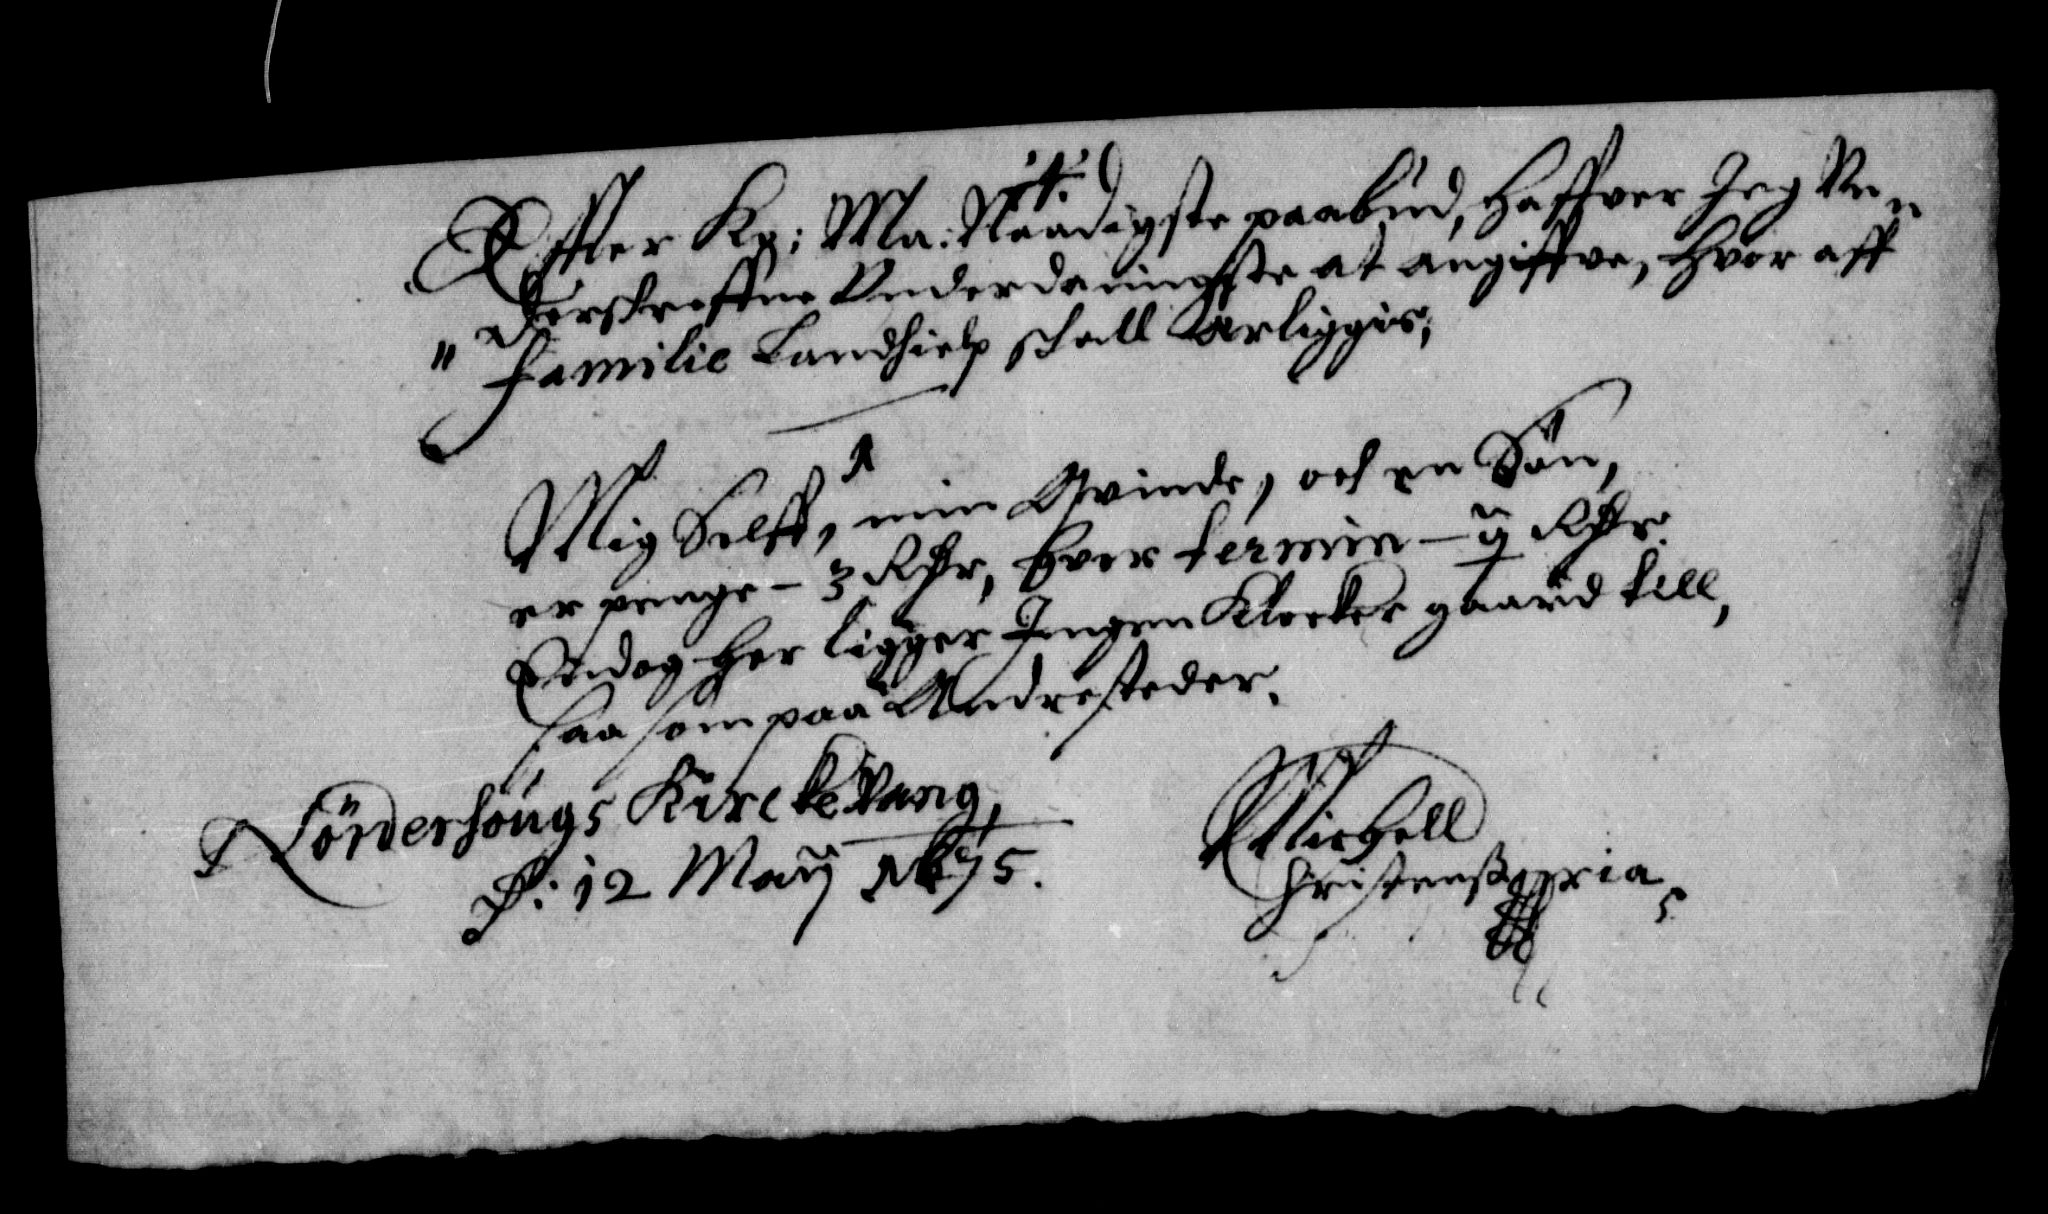 Effter Kg: Ma: Naadigste paabud, Haffver Jeg Un„
„derskreffne Underdanningste at angiffve, Hvor aff
Familie Landhielp schall Ærliggis,
Mig Selff, min Qvinde, och en Sön,
er penge – 3 Rdlr, Hver termin – ij Rdlr.
Endog Her ligger Ingen Klocker gaard till,
saa som paa Andre steder.
Nörderhougs Kircke Vang,
D: 12 Maij 1675.
Michell
Christenß